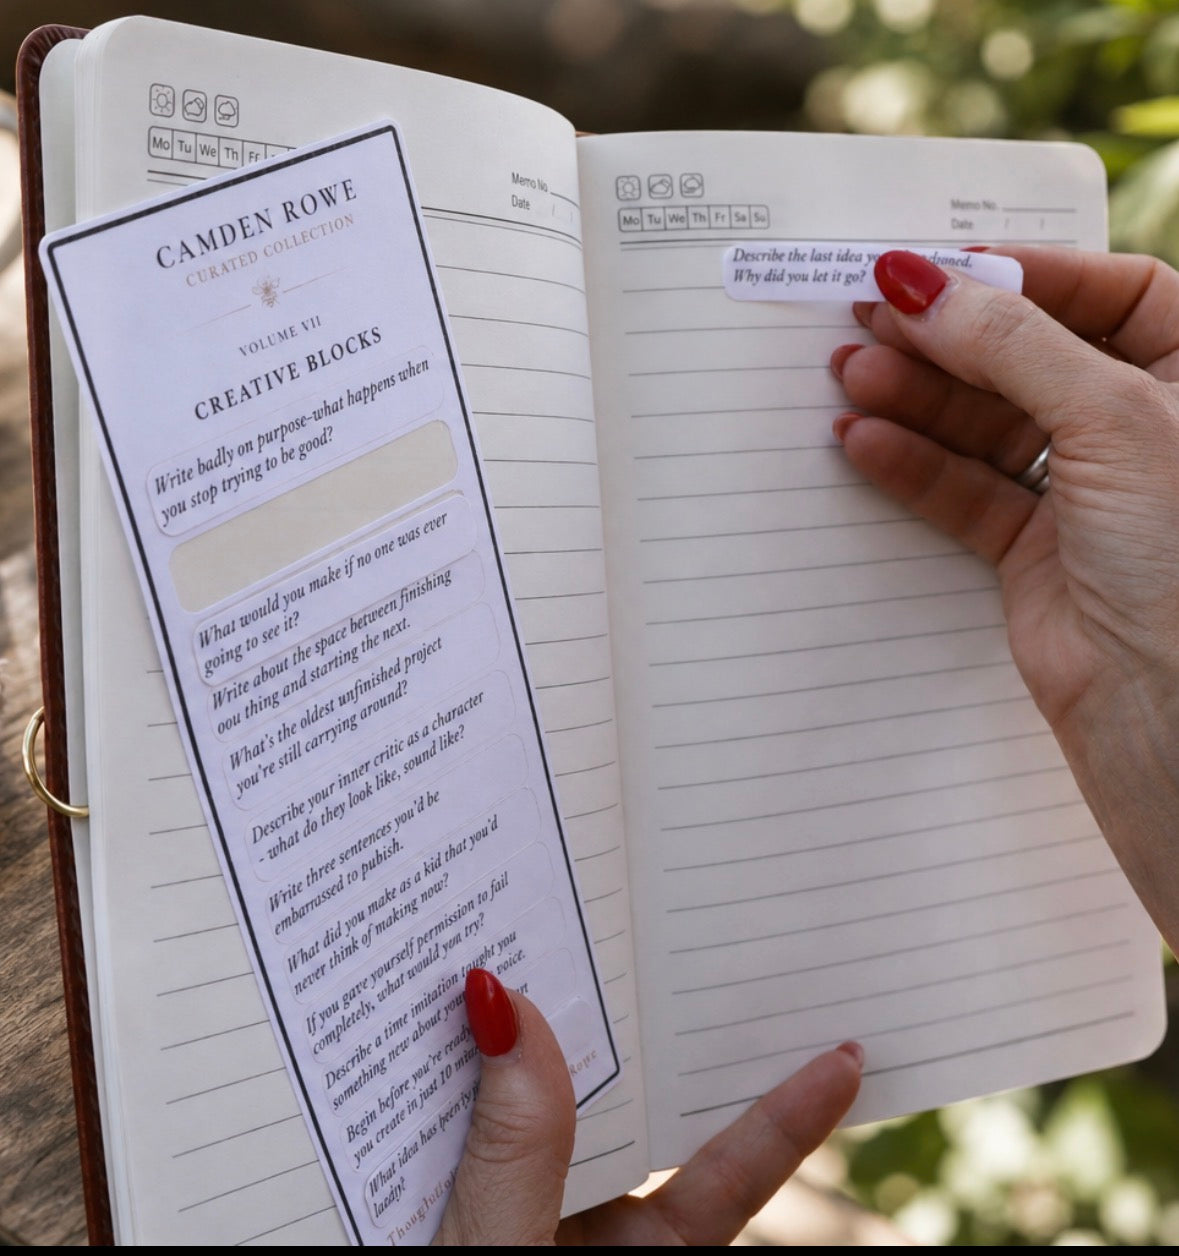 Mo Tu We Th Fr
Memo No
Date / /
CAMDEN ROWE
CURATED COLLECTION
VOLUME VII
CREATIVE BLOCKS
Write badly on purpose–what happens when
you stop trying to be good?
What would you make if no one was ever
going to see it?
Write about the space between finishing
oou thing and starting the next.
What's the oldest unfinished project
you're still carrying around?
Describe your inner critic as a character
- what do they look like, sound like?
Write three sentences you'd be
embarrassed to pubish.
What did you make as a kid that you'd
never think of making now?
If you gave yourself permission to fail
completely, what would you try?
Describe a time imitation taught you
something new about your voice.
Begin before you're ready
you create in just 10
What idea has been
Rowe
Mo Tu We Th Fr Sa Su
Memo No.
Date / /
Describe the last idea
Why did you let it go?